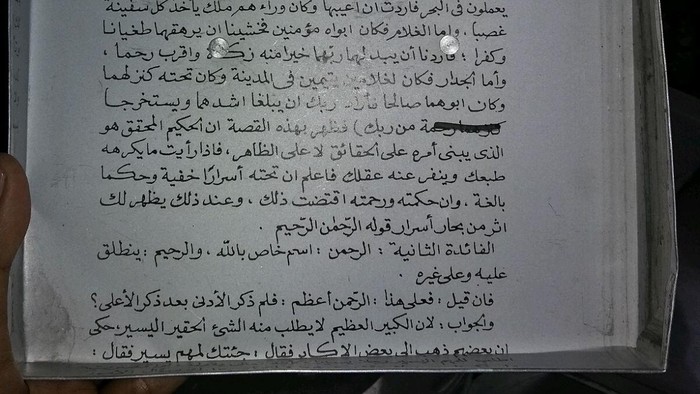 يعملون فى البحر فأردت ان اعيبها وكان وراءهم ملك يأخذ كل سفينة
غصبا ، واما الغلام فكان ابواه مؤمنين فخشينا ان يرهقهما طغيانا
وكفرا ؛ فأردنا أن يبدلهما ربهما خيرا منه زكاة واقرب رحما ،
وأما الجدار فكان لغلامين يتيمين فى المدينة وكان تحته كنز لهما
وكان ابوهما صالحا فأراد ربك ان يبلغا اشدهما ويستخرجا
كنزهما رحمة من ربك ) فظهر بهذه القصة ان الحكيم المحقق هو
الذى يبنى أمره على الحقائق لا على الظاهر ، فاذا رأيت ما يكرهه
طبعك وينفر عنه عقلك فاعلم ان تحته أسرارًا خفية وحكما
بالغة ، وان حكمته ورحمته اقتضت ذلك ، وعند ذلك يظهر لك
اثر من بحار أسرار قوله الرّحمٰن الرّحيم .
الفائدة الثانية : الرحمن : اسم خاص بالله ، والرحيم : ينطلق
عليه وعلى غيره .
فان قيل : فعلى هذا : الرّحمن أعظم : فلم ذكر الأدنى بعد ذكر الأعلى ؟
والجواب : لان الكبير العظيم لا يطلب منه الشئ الحقير اليسير، حكى
ان بعضهم ذهب الى بعض الاكابر فقال : جئتك لمهم يسير فقال :